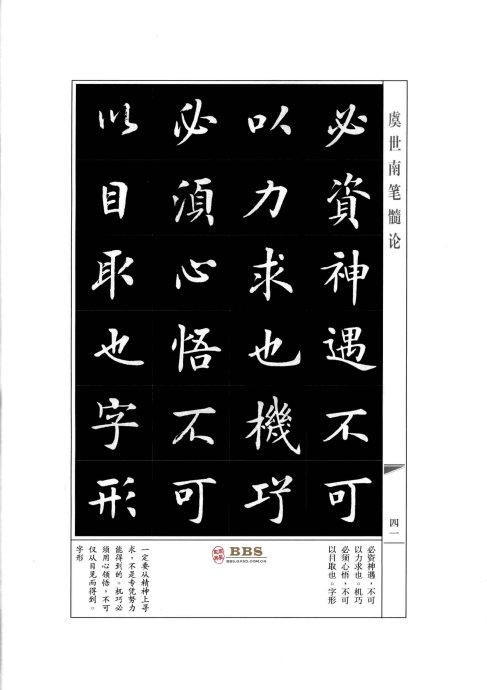 虞世南笔髓论
四一
必資神遇不可
以力求也機巧
必須心悟不可
以目取也字形
必资神遇，不可
以力求也。机巧
必须心悟，不可
以目取也。字形
一定要从精神上寻
求，不是专凭努力
能得到的。机巧必
须用心领悟，不可
仅从目见而得到。
字形
BBS
BBSGASO.COM.CN